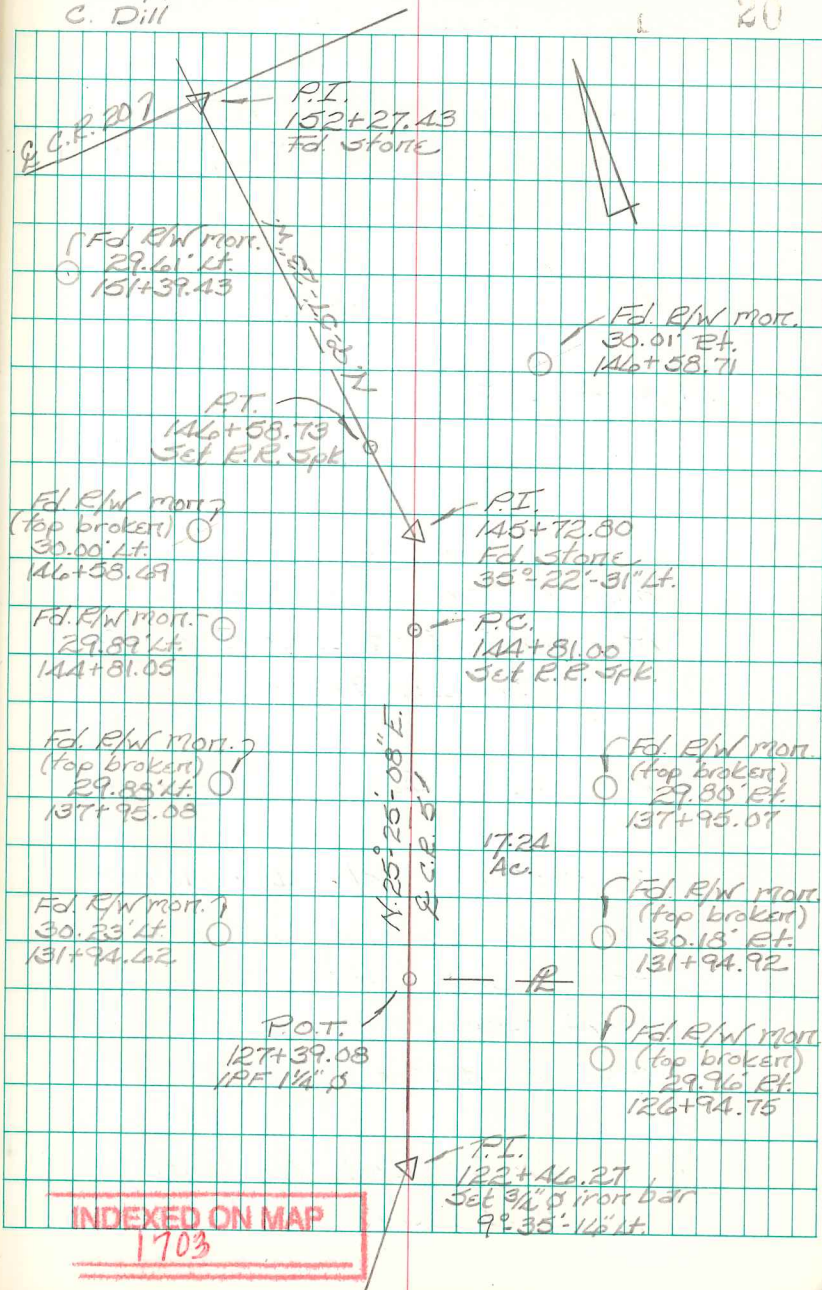 C. Dill
20
P.I.
152+27.43
Fd. stone
℄ C.R. 207
Fd. R/W mon.
29.61' Lt.
151+39.43
Fd. R/W mon.
30.01' Rt.
146+58.71
P.T.
146+58.73
Set R.R. Spk
Fd. R/W mon.
(top broken)
30.00' Lt.
146+58.69
P.I.
145+72.80
Fd. stone
35°-22'-31" Lt.
Fd. R/W mon.
29.89' Lt.
144+81.05
P.C.
144+81.00
Set R.R. Spk.
Fd. R/W mon.
(top broken)
29.88' Lt.
137+95.08
Fd. R/W mon.
(top broken)
29.80' Rt.
137+95.07
N.25°-25'-08" E.
℄ C.R. 57
17.24
Ac.
Fd. R/W mon.
30.23' Lt.
131+94.62
Fd. R/W mon.
(top broken)
30.18' Rt.
131+94.92
PL
P.O.T.
127+39.08
IPF 1¼" ø
Fd. R/W mon.
(top broken)
29.96' Rt.
126+94.75
P.I.
122+46.27
Set ¾" ø iron bar
9°-35'-16" Lt.
INDEXED ON MAP
1703